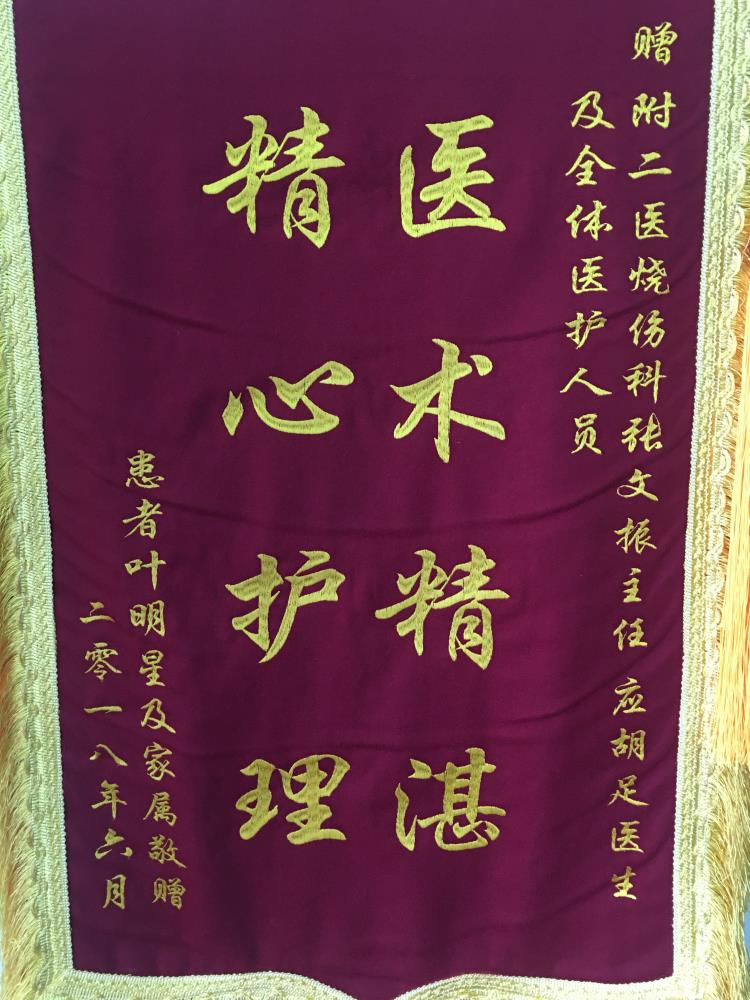 赠 附二医烧伤科张文振主任 应胡足医生
及全体医护人员
医术精湛
精心护理
患者叶明星及家属敬赠
二零一八年六月